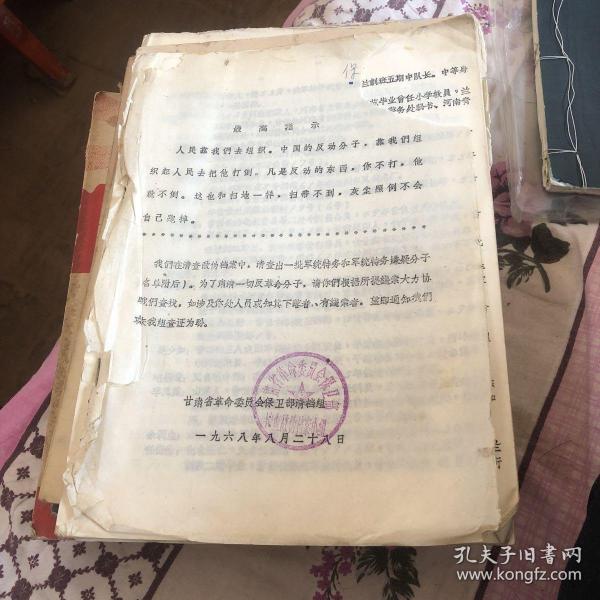 保
兰训班五期中队长。中等身
毕业曾任小学教员。兰
务处秘书、河南省
最高指示
人民靠我们去组织。中国的反动分子，靠我们组
织起人民去把他打倒。凡是反动的东西，你不打，他
就不倒。这也和扫地一样，扫帚不到，灰尘照例不会
自己跑掉。
我们在清查敌伪档案中，清查出一批军统特务和军统特务嫌疑分子
（名单附后）。为了肃清一切反革命分子，请你们根据所提线索大力协
助我们查找，如涉及你处人员或知其下落者、有线索者，立即通知我们
以便我组查证为盼。
甘肃省革命委员会保卫部清档组
一九六八年八月二十八日
孔夫子旧书网
www.kongfz.com